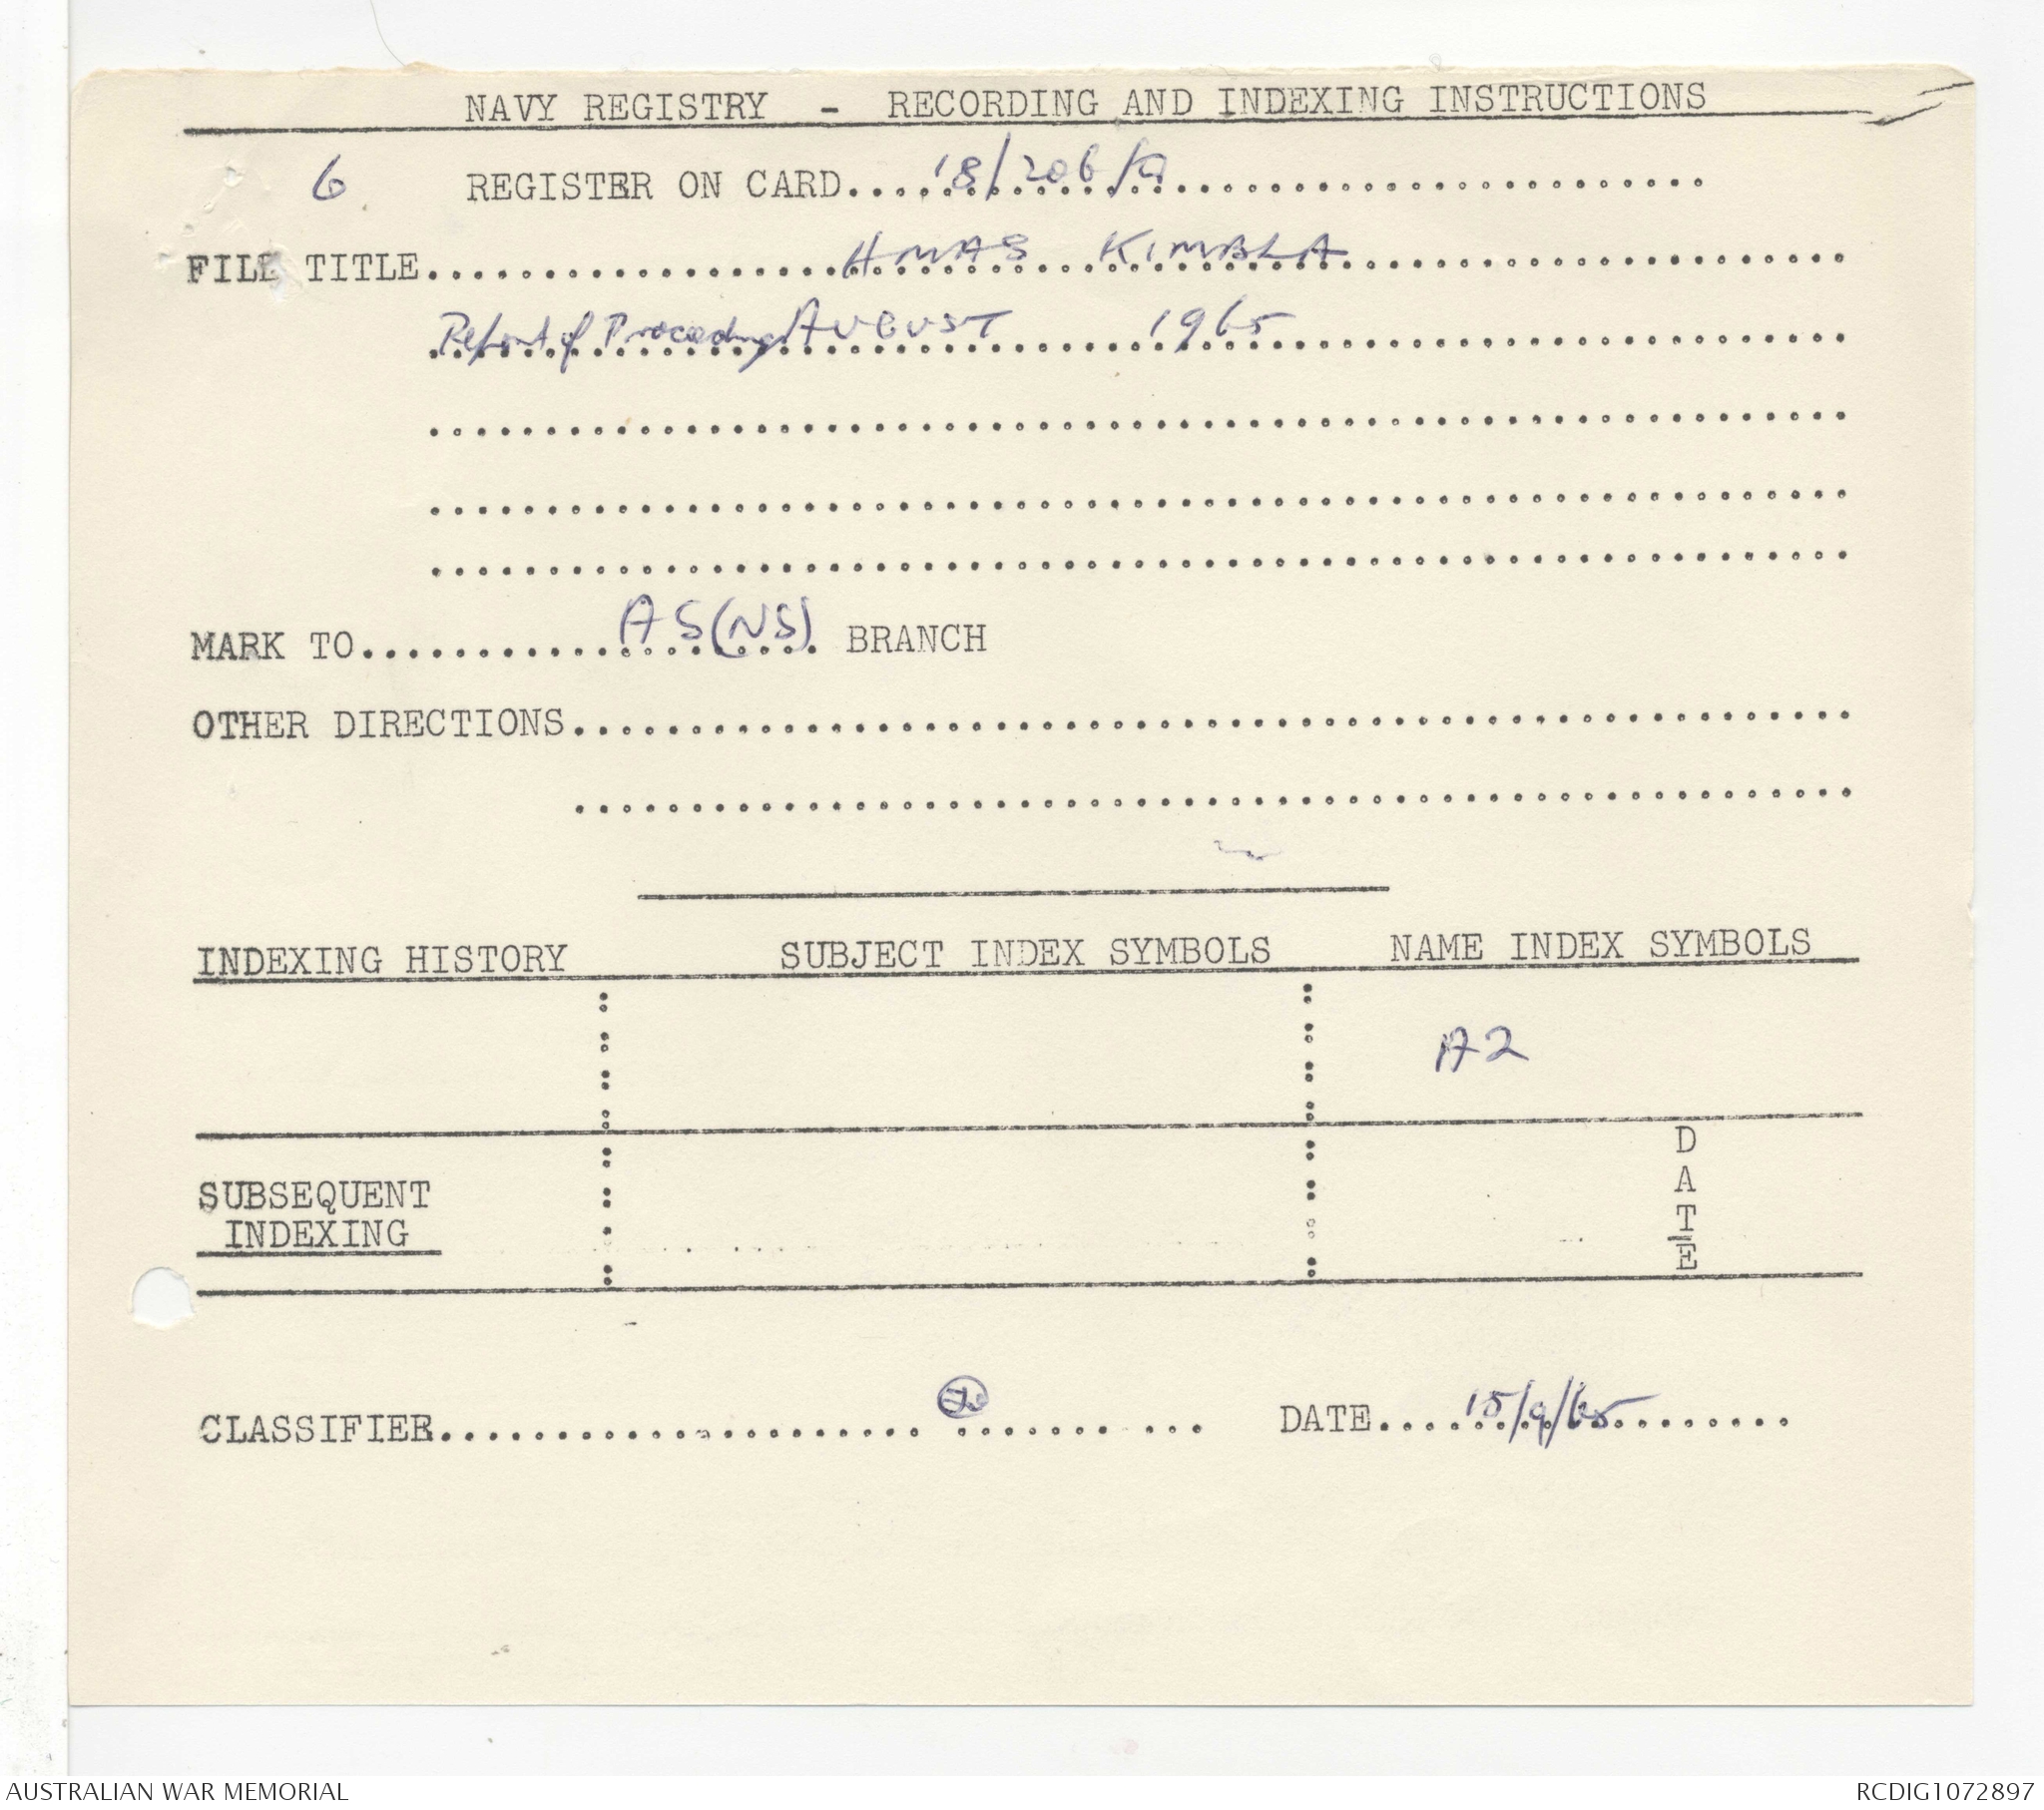 NAVY REGISTRY - RECORDING AND INDEXING INSTRUCTIONS
6 REGISTER ON CARD....18/206/
FILE TITLE....HMAS KIMBLA
Report of Proceedings AUGUST 1965
MARK TO....AS(NS) BRANCH
OTHER DIRECTIONS....
INDEXING HISTORY SUBJECT INDEX SYMBOLS NAME INDEX SYMBOLS
A2
SUBSEQUENT
INDEXING
DATE
CLASSIFIER.... DATE....15/9/65
AUSTRALIAN WAR MEMORIAL RCDIG1072897